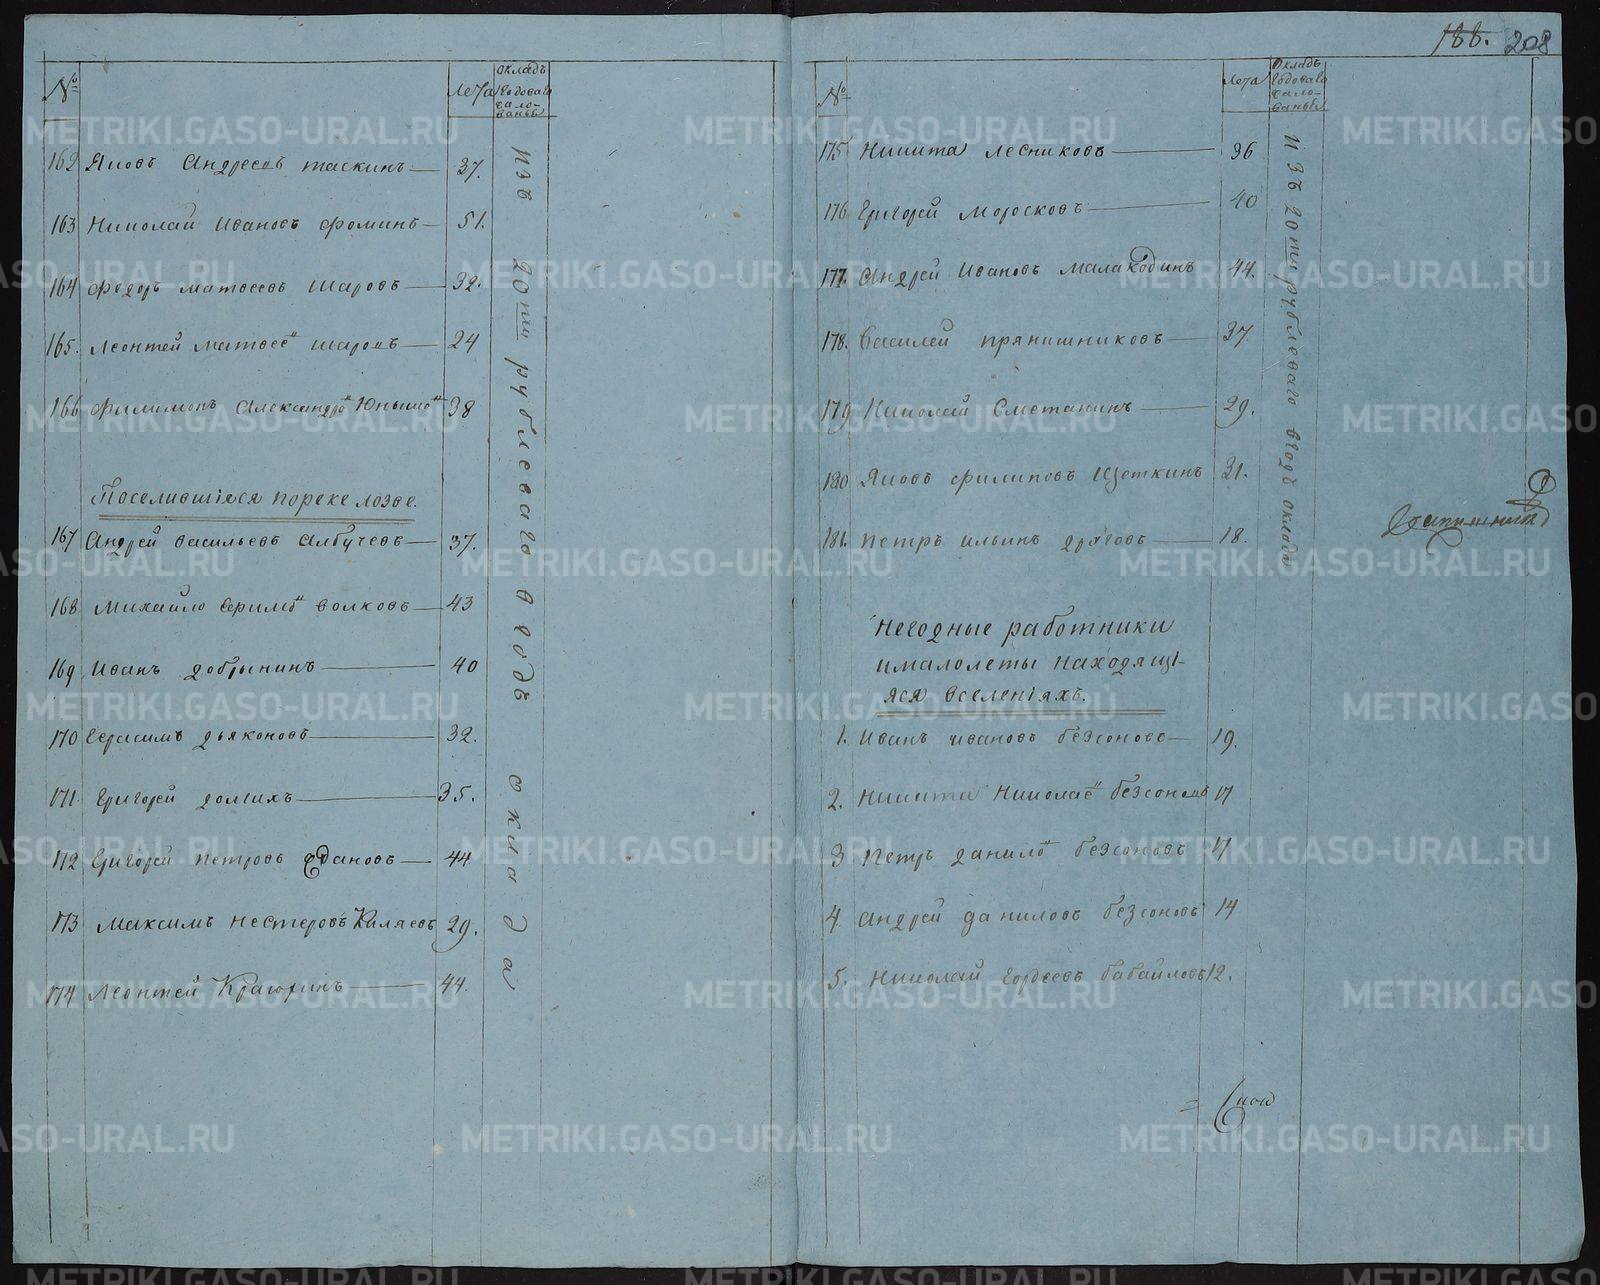 188. 208
№ Лета Окладъ годоваго жалованья
162 Яковъ Андреевъ Таскинъ — 37.
163 Николай Ивановъ Фоминъ — 51.
164 Федоръ Матвеевъ Шаровъ — 32.
165. Леонтей Матвее" Шаровъ — 24
166 Филимонъ Александро" 38
Поселившiеся пореке лозве.
167 Андрей Васильевъ Албучевъ — 37.
168 Михайло Ефимо" Волковъ — 43
169 Иванъ Добрынинъ — 40
170 Герасимъ Дьяконовъ — 32.
171 Григорей Долгихъ — 35.
172 Григорей Петровъ Ждановъ — 44
173 Максимъ Нестеровъ Киляевъ 29.
174 Леонтей — 44.
изъ 20ти рублеваго в годъ оклада
№ Лета Окладъ годоваго жалованья
175 Никита Лесниковъ — 36
176 Григорей Моросковъ — 40
177. Андрей Ивановъ Малахов 44.
178. Василей Прянишниковъ — 37.
179 Николай Сметанинъ — 29.
180 Яковъ Филиповъ Щеткинъ 31.
181. Петръ Ильинъ Дряговъ — 18.
изъ 20ти рублеваго вгодъ оклада
Негодные работники
ималолеты находящi-
яся вселенiяхъ.
1. Иванъ Ивановъ Безсоновъ — 19.
2. Никита Николае" Безсоновъ 17
3 Петръ Данило" Безсоновъ 17
4 Андрей Даниловъ Безсоновъ 14
5. Николай Гордеевъ Бабайловъ 12.
METRIKI.GASO-URAL.RU